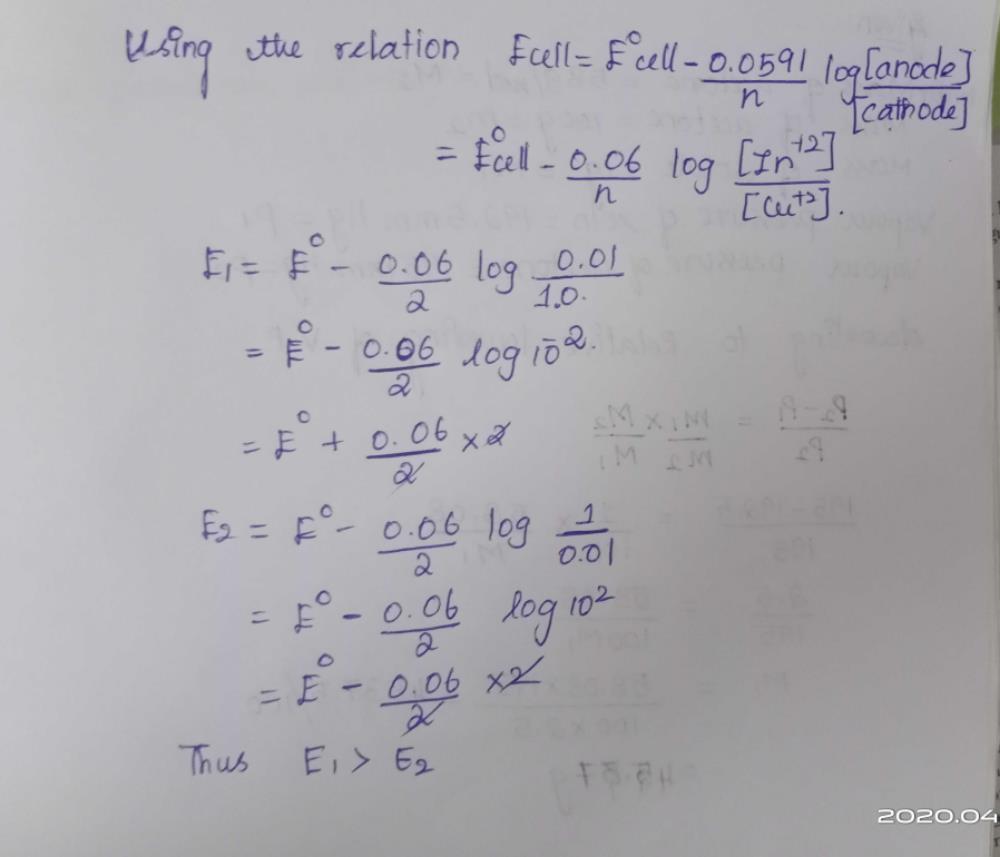 Using the relation Ecell = E°cell - 0.0591/n log [anode]/[cathode]
= E°cell - 0.06/n log [Zn+2]/[Cu+2].
E1 = E° - 0.06/2 log 0.01/1.0.
= E° - 0.06/2 log 10-2.
= E° + 0.06/2 × 2
E2 = E° - 0.06/2 log 1/0.01
= E° - 0.06/2 log 10²
= E° - 0.06/2 × 2
Thus E1 > E2
2020.04